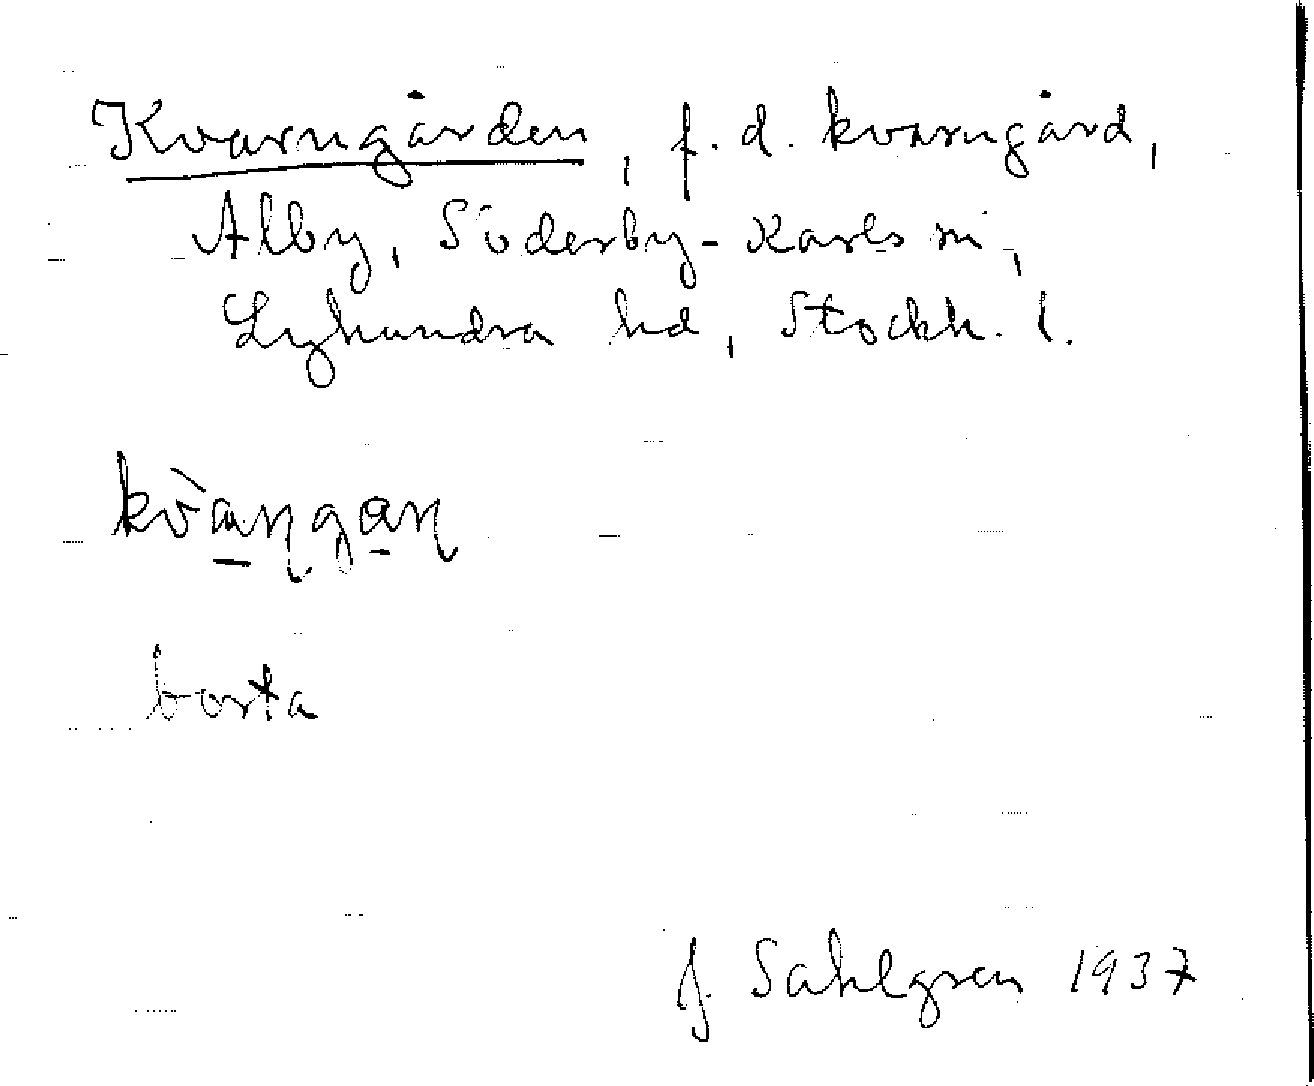 Kvarngården, f. d. kvarngård,
Alby, Söderby-Karls sn,
Lyhundra hd, Stockh. l.
kvàŋgaɳ
borta
J. Sahlgren 1937